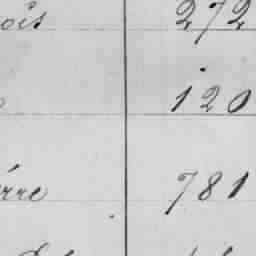 ois 272
120
erre 781